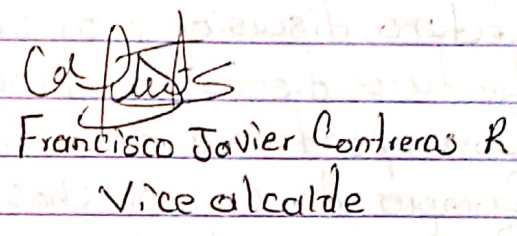 Francisco Javier Contreras R
Vice alcalde